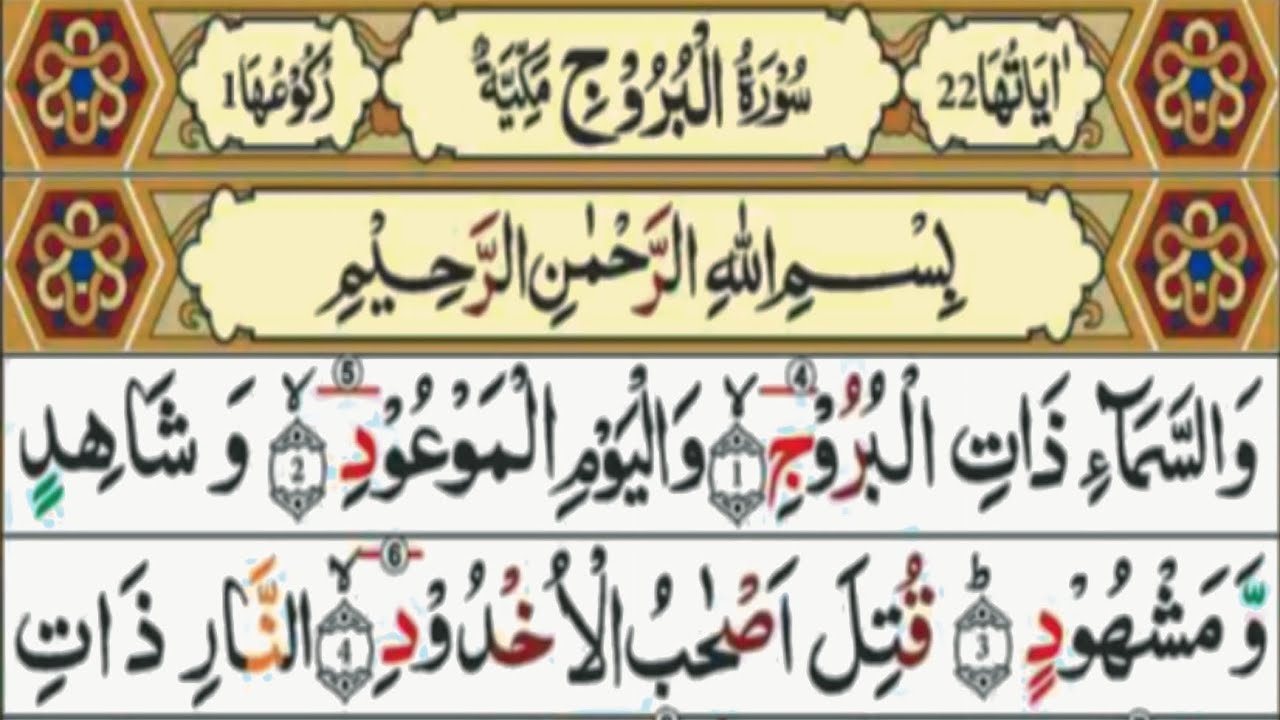 اٰيَاتُهَا 22 سُوْرَةُ الْبُرُوْجِ مَكِّيَّةٌ رُكُوْعُهَا 1
بِسْمِ اللهِ الرَّحْمٰنِ الرَّحِيْمِ
وَالسَّمَآءِ ذَاتِ الْبُرُوْجِ ④ ۙ 1 وَالْيَوْمِ الْمَوْعُوْدِ ⑤ ۙ 2 وَ شَاهِدٍ
وَّ مَشْهُوْدٍ ؕ 3 قُتِلَ اَصْحٰبُ الْاُخْدُوْدِ ⑥ ۙ 4 النَّارِ ذَاتِ